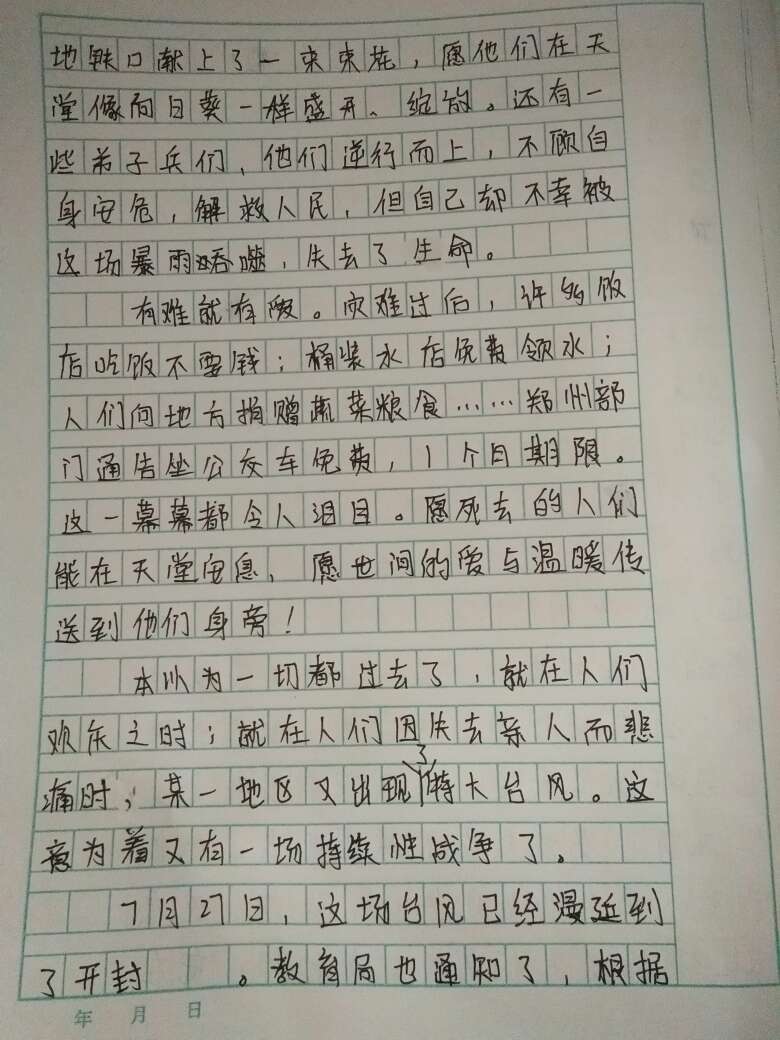 地铁口献上了一束束花，愿他们在天
堂像向日葵一样盛开、绽放。还有一
些弟子兵们，他们逆行而上，不顾自
身安危，解救人民，但自己却不幸被
这场暴雨吞噬，失去了生命。
有难就有暖。灾难过后，许多饭
店吃饭不要钱；桶装水店免费领水；
人们向地方捐赠蔬菜粮食……郑州部
门通告坐公交车免费，1个日期限。
这一幕幕都令人泪目。愿死去的人们
能在天堂安息，愿世间的爱与温暖传
送到他们身旁！
本以为一切都过去了，就在人们
欢乐之时；就在人们因失去亲人而悲
痛时，某一地区又出现了特大台风。这
意为着又有一场持续性战争了。
7月27日，这场台风已经漫延到
了开封。教育局也通知了，根据
年 月 日